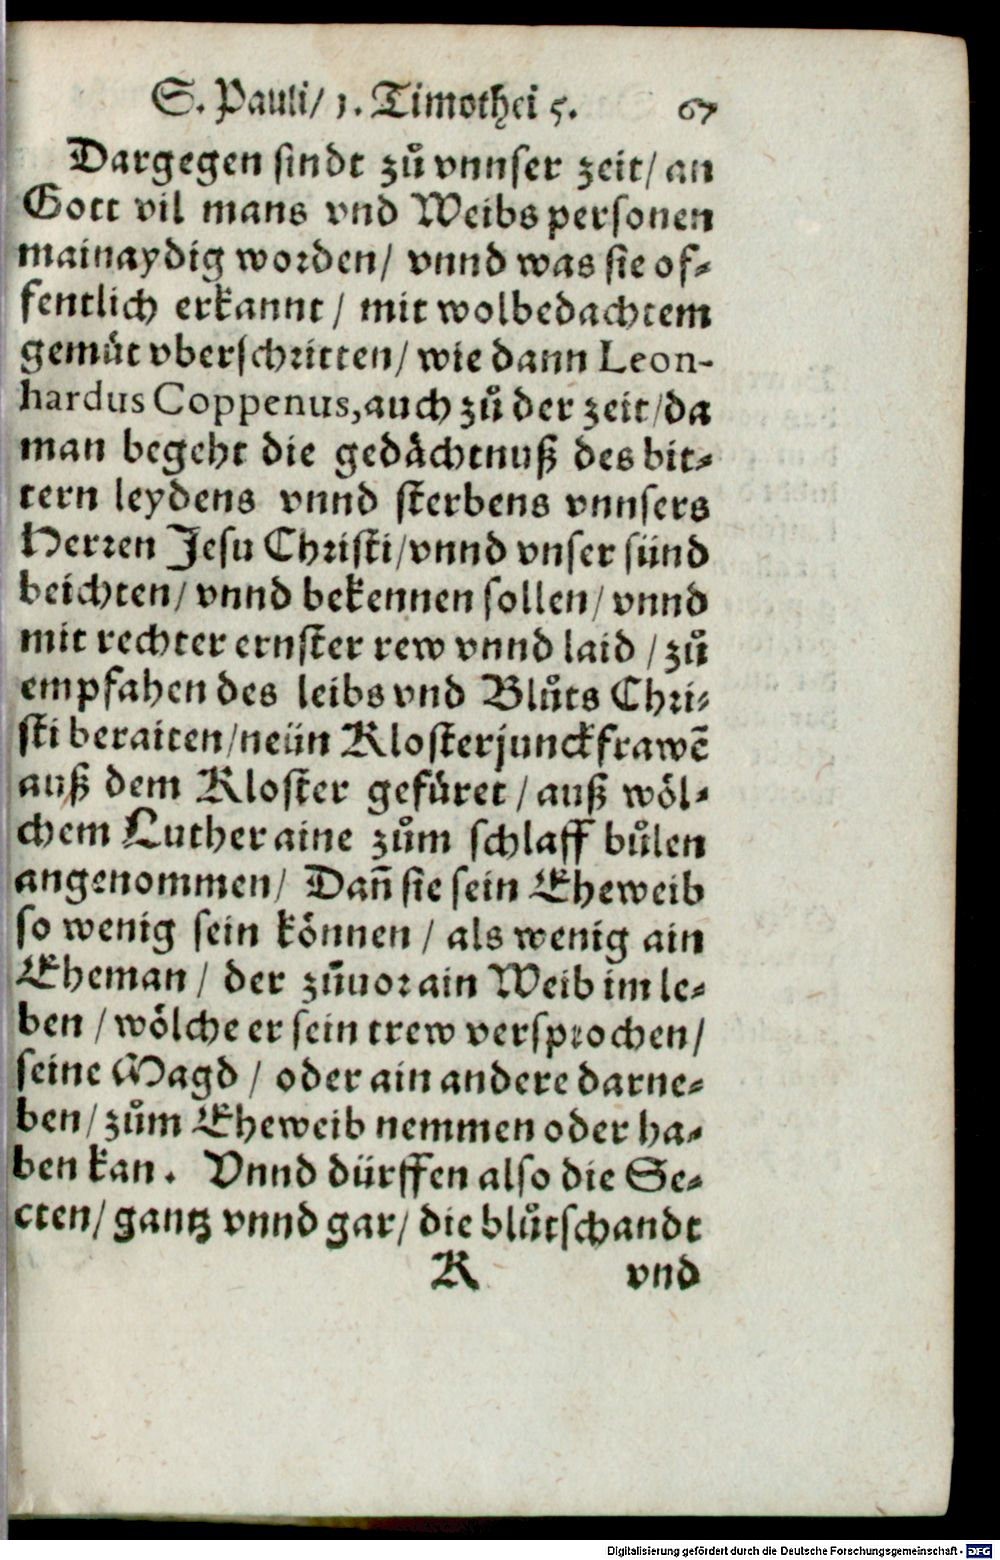 S. Pauli/ 1. Timothei 5. 67
Dargegen sindt zů vnnser zeit/ an
Gott vil mans vnd Weibs personen
mainaydig worden/ vnnd was sie of-
fentlich erkannt / mit wolbedachtem
gemüt vberschritten/ wie dann Leon-
hardus Coppenus, auch zů der zeit/ da
man begeht die gedächtnuß des bit-
tern leydens vnnd sterbens vnnsers
Herren Jesu Christi/ vnnd vnser sünd
beichten/ vnnd bekennen sollen/ vnnd
mit rechter ernster rew vnnd laid / zů
empfahen des leibs vnd Blůts Chri-
sti beraiten/ neün Klosterjunckfrawē
auß dem Kloster gefüret / auß wöl-
chem Luther aine zům schlaff bůlen
angenommen/ Dañ sie sein Eheweib
so wenig sein können / als wenig ain
Eheman / der zůuor ain Weib im le-
ben / wölche er sein trew versprochen/
seine Magd / oder ain andere darne-
ben/ zům Eheweib nemmen oder ha-
ben kan. Vnnd dürffen also die Se-
cten/ gantz vnnd gar/ die blůtschandt
K vnd
Digitalisierung gefördert durch die Deutsche Forschungsgemeinschaft - DFG